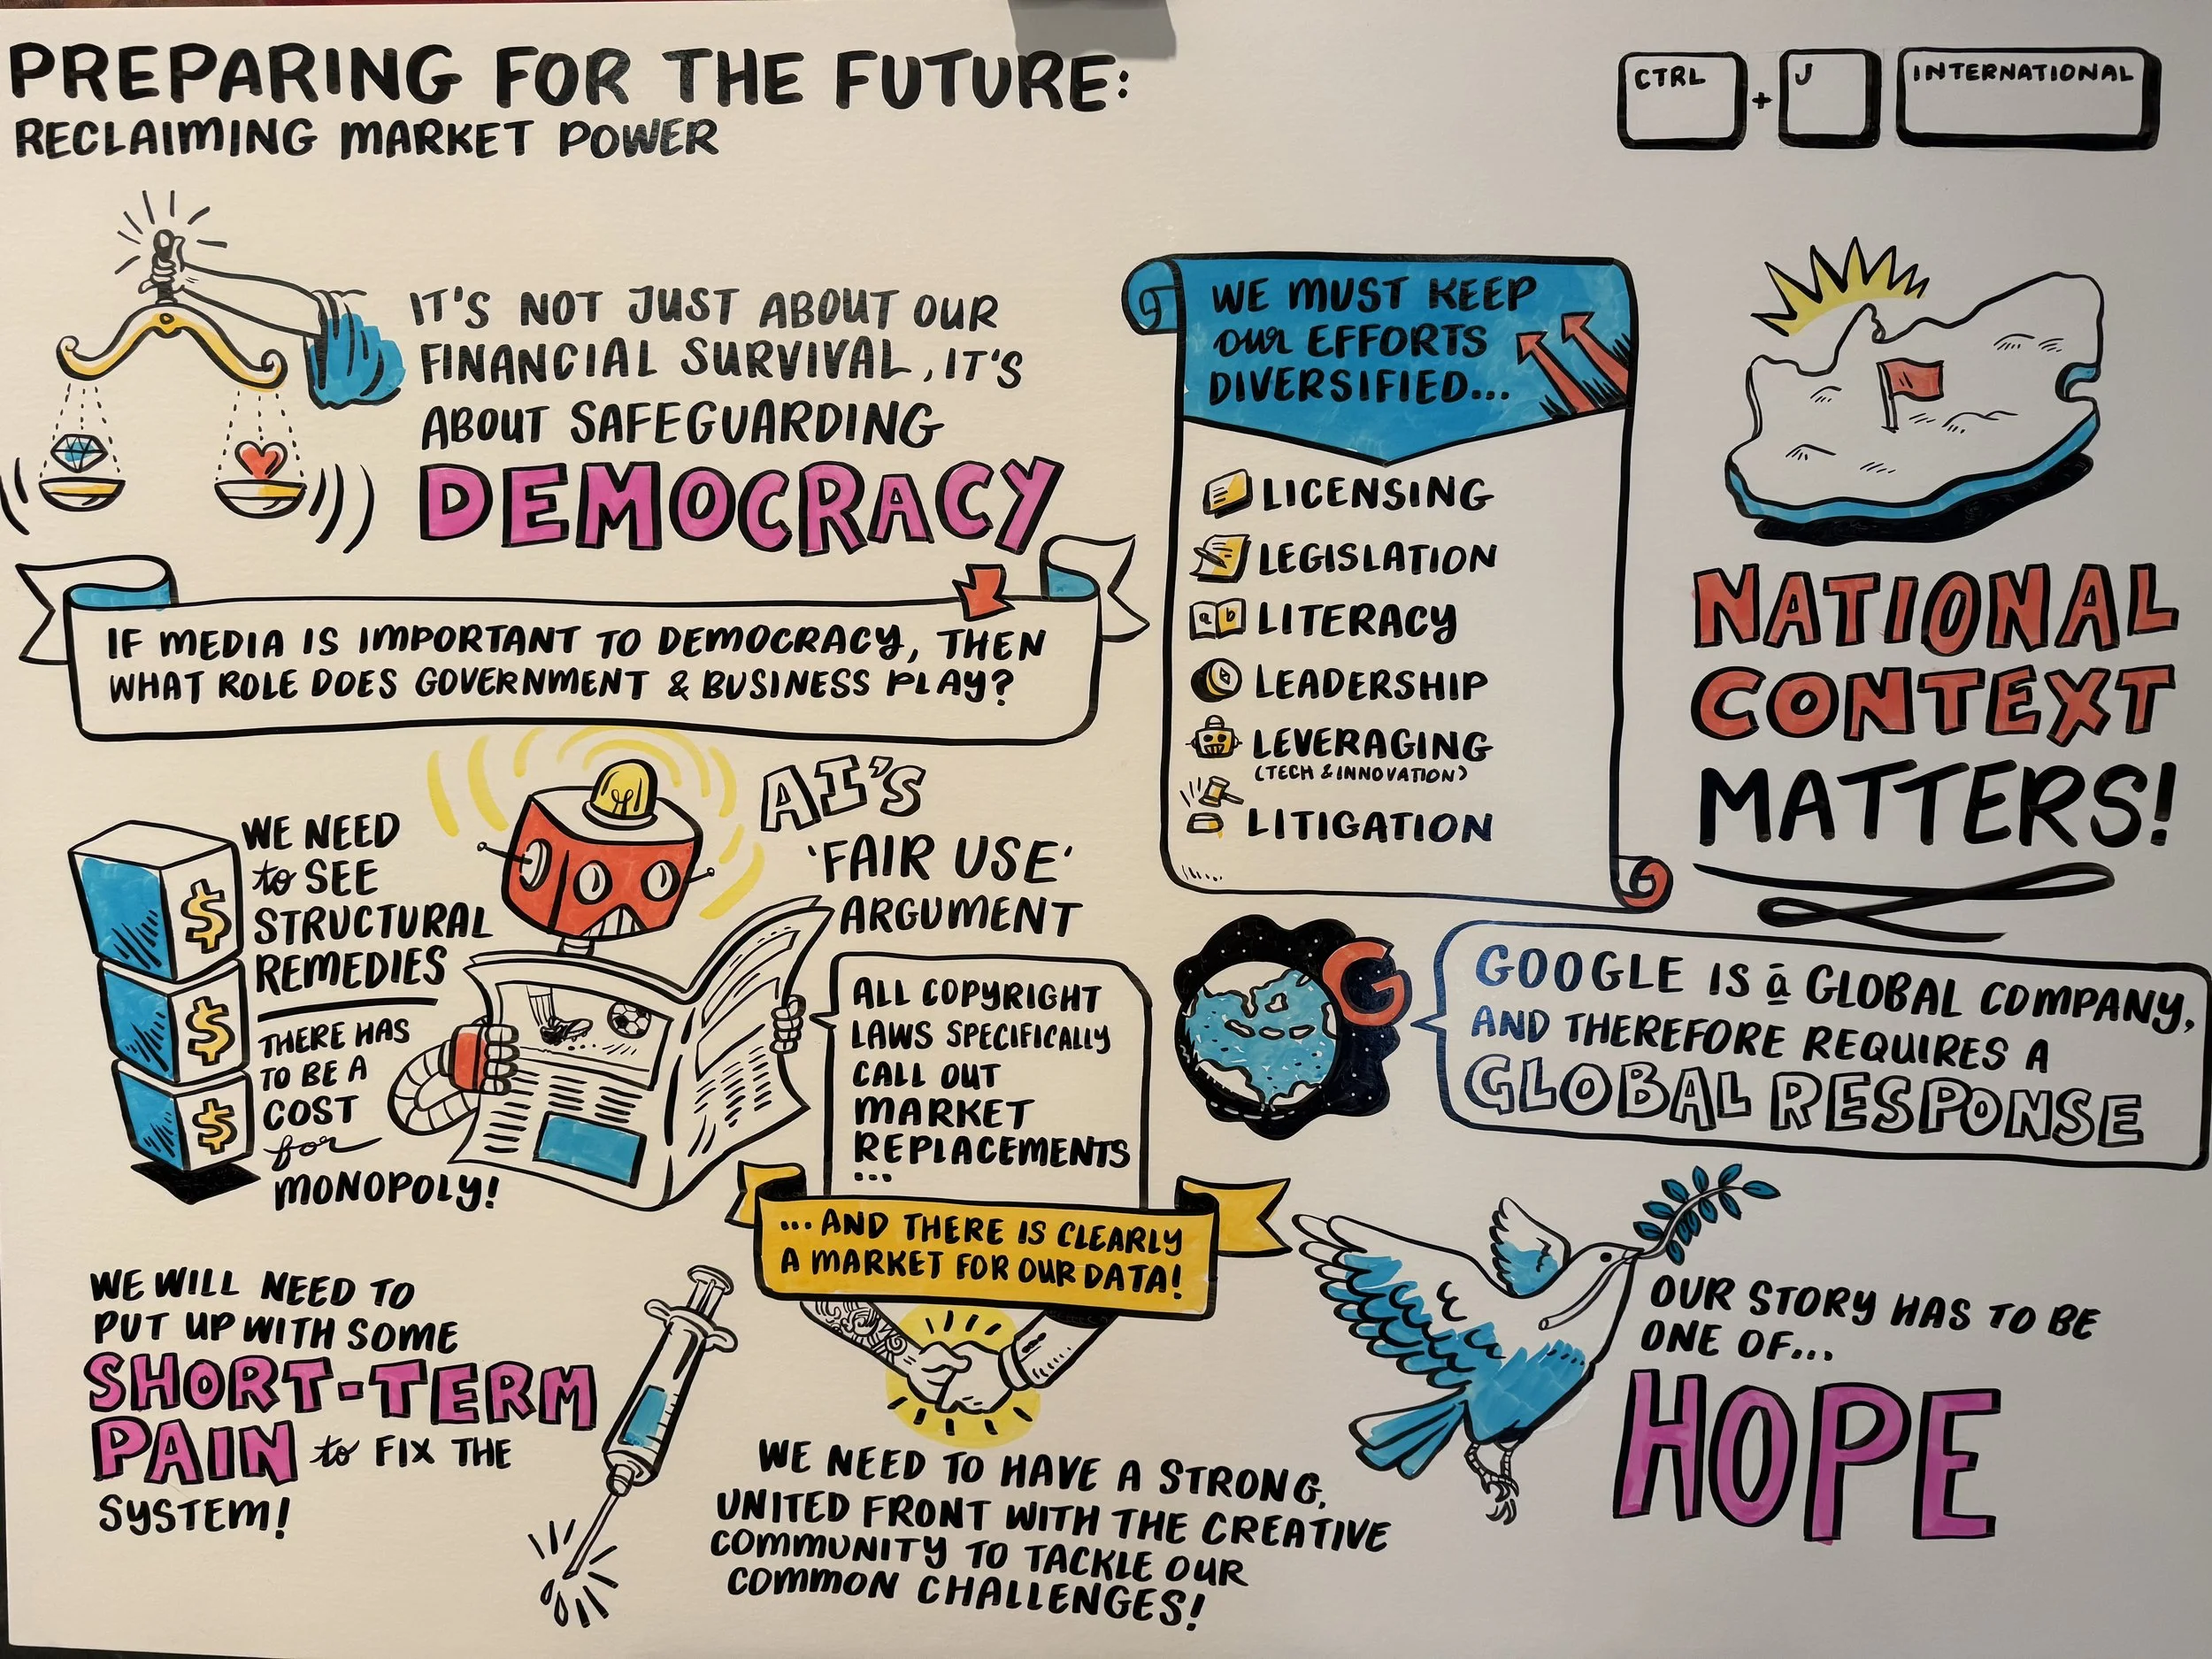 PREPARING FOR THE FUTURE:
RECLAIMING MARKET POWER
CTRL + J INTERNATIONAL
IT'S NOT JUST ABOUT OUR
FINANCIAL SURVIVAL, IT'S
ABOUT SAFEGUARDING
DEMOCRACY
IF MEDIA IS IMPORTANT TO DEMOCRACY, THEN
WHAT ROLE DOES GOVERNMENT & BUSINESS PLAY?
WE MUST KEEP
our EFFORTS
DIVERSIFIED...
LICENSING
LEGISLATION
a b
LITERACY
LEADERSHIP
LEVERAGING
(TECH & INNOVATION)
LITIGATION
NATIONAL
CONTEXT
MATTERS!
$
$
$
WE NEED
to SEE
STRUCTURAL
REMEDIES
THERE HAS
TO BE A
COST
for
MONOPOLY!
AI'S
'FAIR USE'
ARGUMENT
ALL COPYRIGHT
LAWS SPECIFICALLY
CALL OUT
MARKET
REPLACEMENTS
...
...AND THERE IS CLEARLY
A MARKET FOR OUR DATA!
G
GOOGLE IS a GLOBAL COMPANY,
AND THEREFORE REQUIRES A
GLOBAL RESPONSE
WE WILL NEED TO
PUT UP WITH SOME
SHORT-TERM
PAIN to FIX THE
SYSTEM!
WE NEED TO HAVE A STRONG,
UNITED FRONT WITH THE CREATIVE
COMMUNITY TO TACKLE OUR
COMMON CHALLENGES!
OUR STORY HAS TO BE
ONE OF...
HOPE